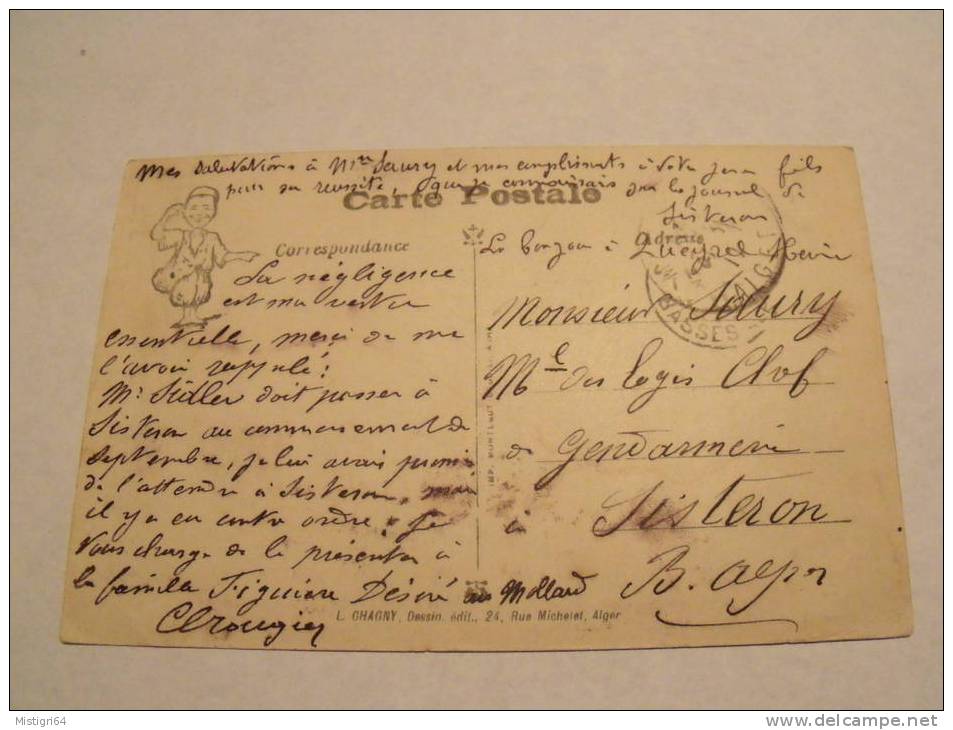 Mes salutations à Mme Saury et mes compliments à votre jeune fils
pour sa réussite, que je connaissais par le journal de
Sisteron
Carte Postale
Le bonjour à Queyrel
Correspondance
Adresse
La négligence
est ma vertu
essentielle, merci de me
l'avoir rappelé!
Mr doit passer à
Sisteron au commencement de
Septembre, je lui avais promis
de l'attendre à Sisteron, mais
il y a eu contre ordre. Je
vous charge de le présenter à
la famille Figuière Désiré au Mollard
CRougier
Monsieur Saury
Mal des logis Chef
de Gendarmerie
à Sisteron
B. Alpes
ALGER
L. CHAGNY, Dessin. édit., 24, Rue Michelet, Alger
Mistigri64
www.delcampe.net